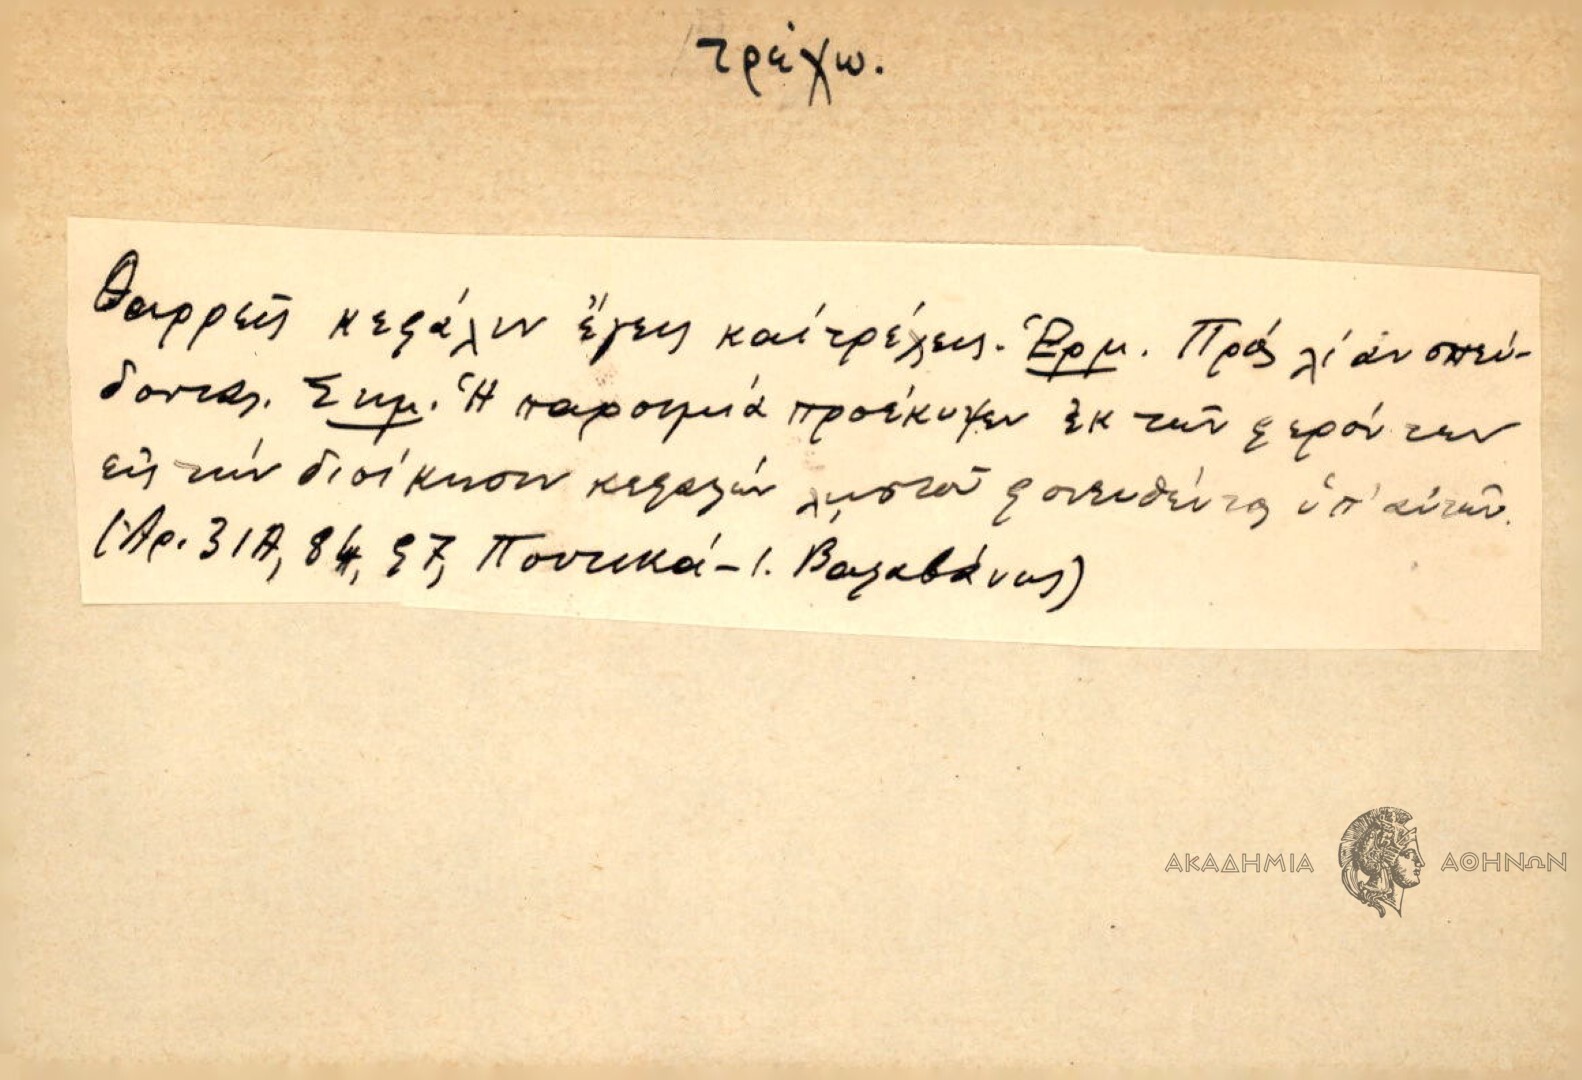 τρέχω.
Θαρρεῖς κεφάλιν ἔχεις καί τρέχεις. Ἑρμ. Πρός λίαν σπεύ-
δοντας. Σημ. Ἡ παροιμία προέκυψεν ἐκ τῶν φερόντων
εἰς τήν διοίκησιν κεφαλήν ληστοῦ φονευθέντος ὑπ' αὐτῶν.
(Ἀρ. 31Α, 84, 97, Ποντικά - Ι. Βαλαβάνης)
ΑΚΑΔΗΜΙΑ ΑΘΗΝΩΝ